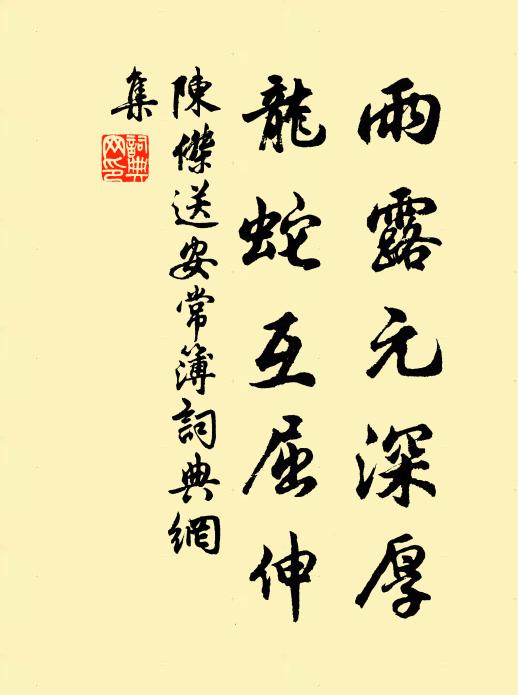 雨露元深厚
龍蛇互屈伸
陳傑送安常簿詞典網
集
詞典網印